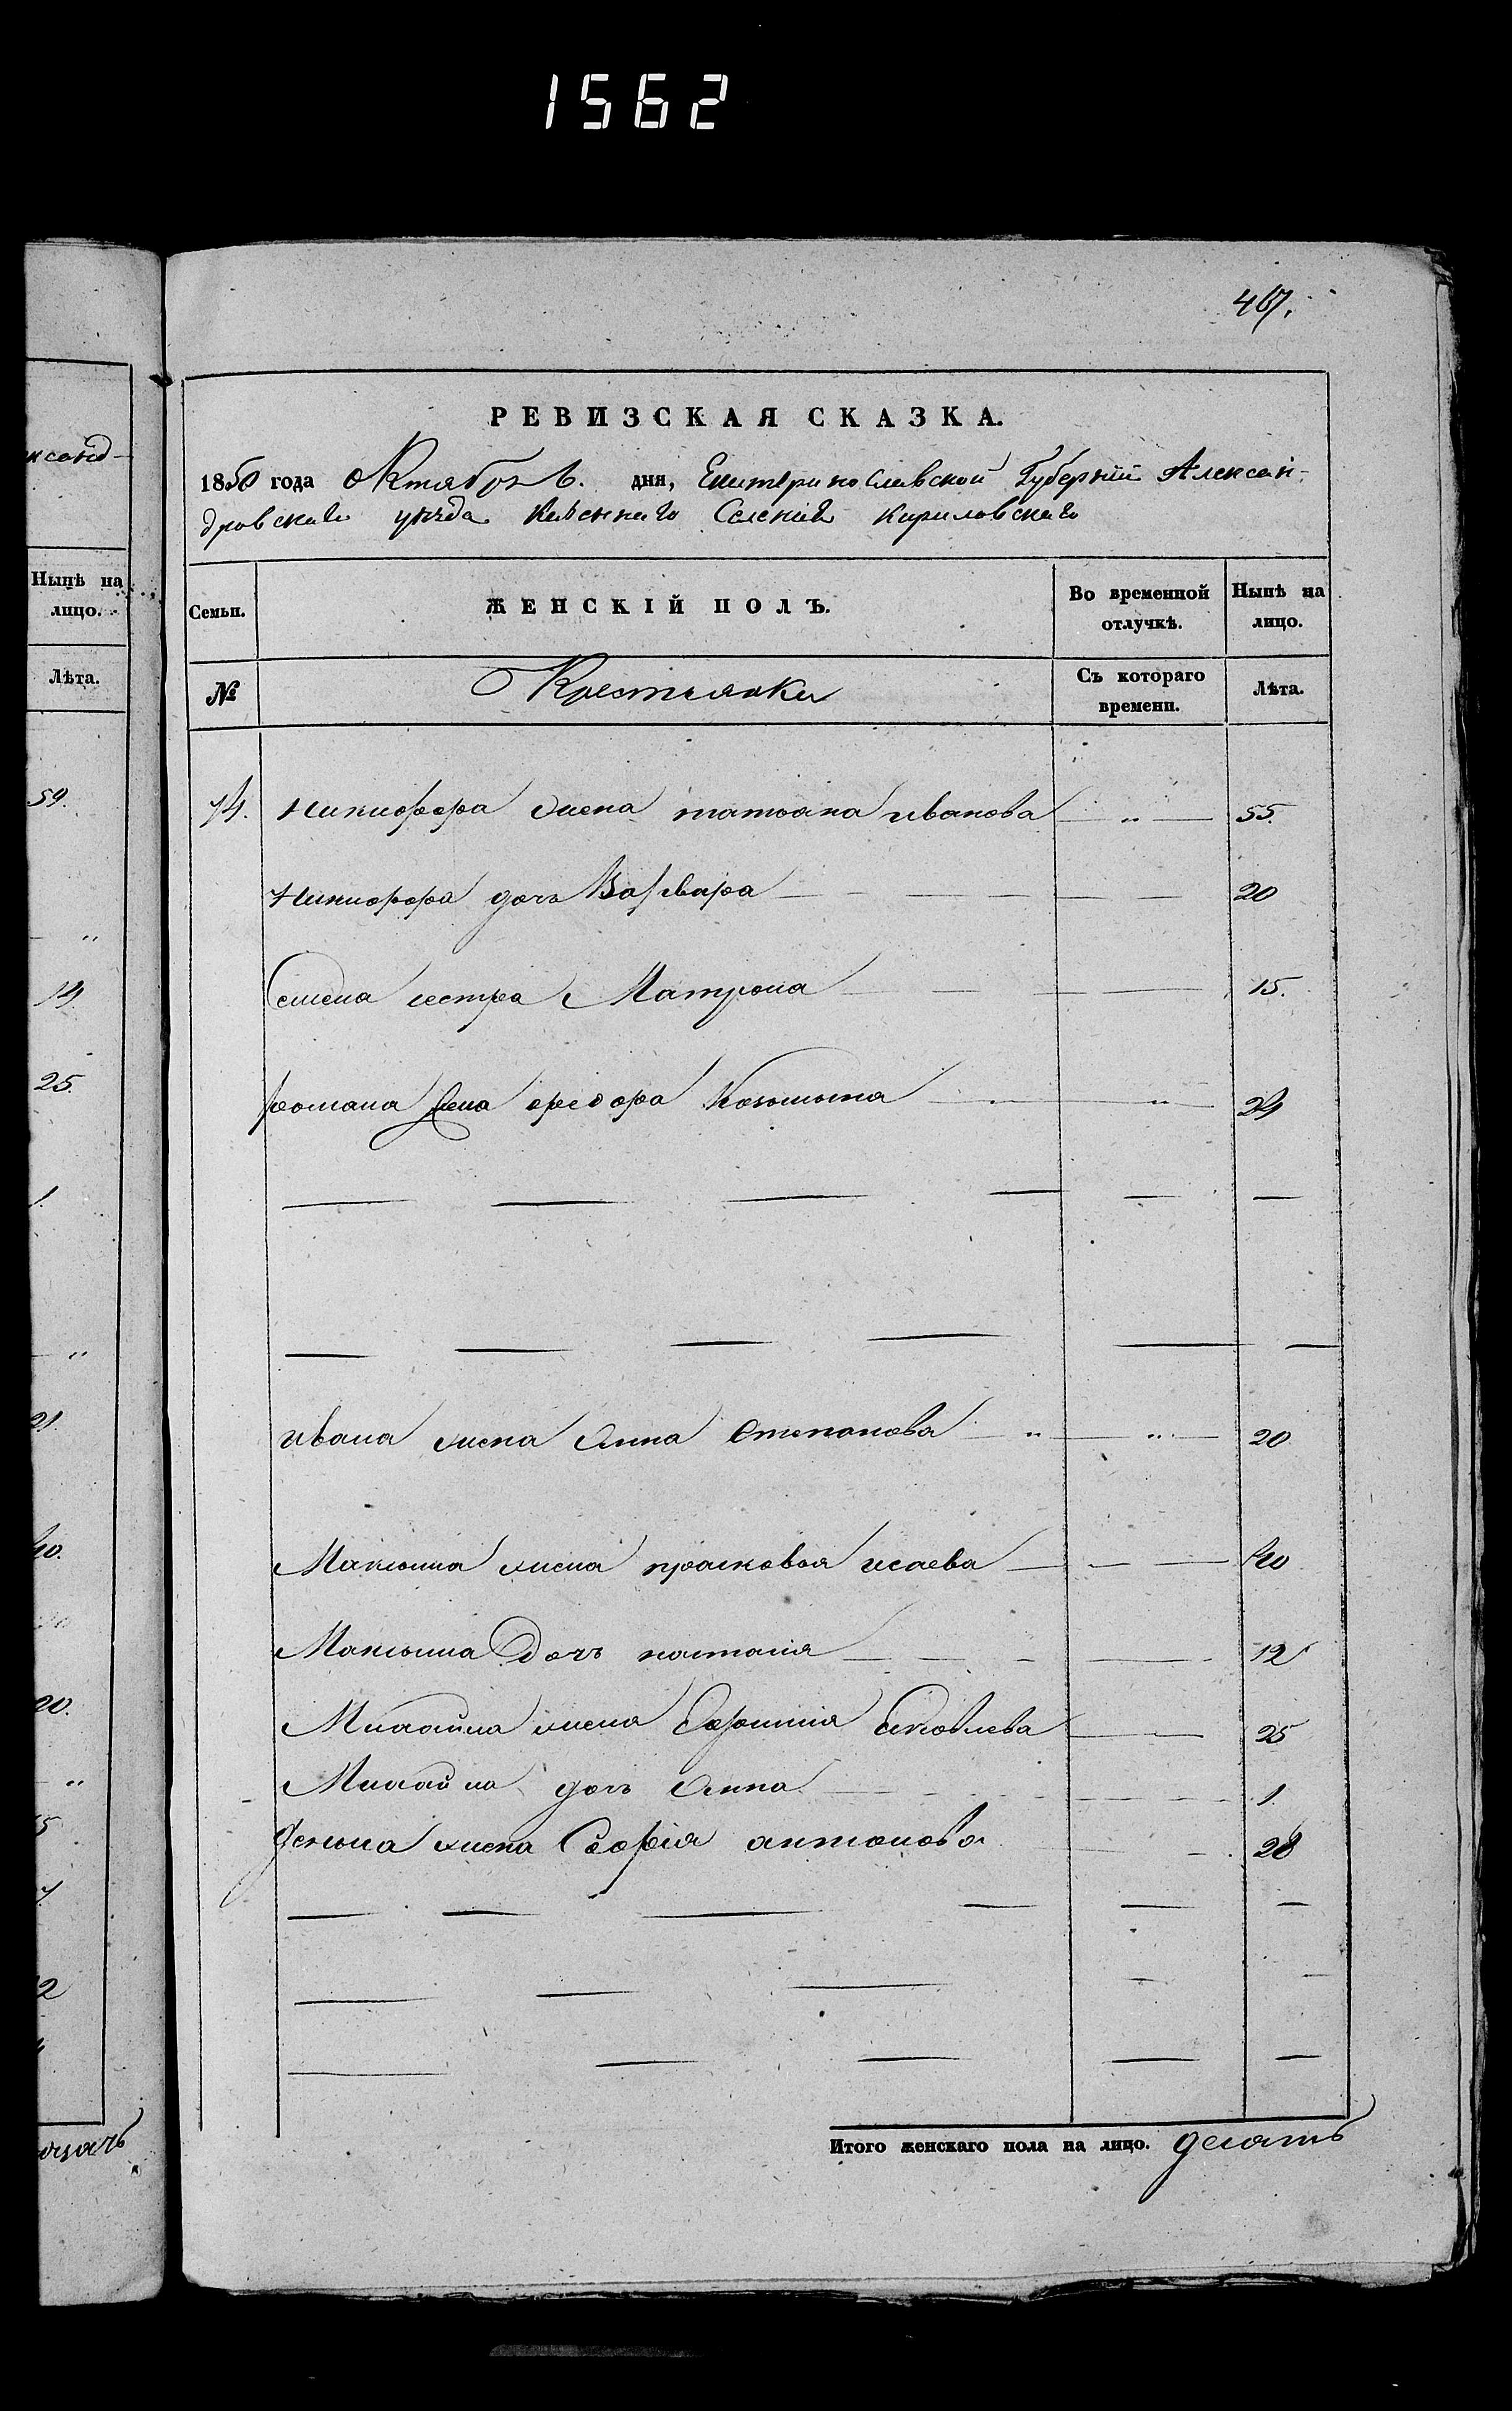 1562
467.
РЕВИЗСКАЯ СКАЗКА.
1850 года Октября 6. дня, Екитериносливской Губернии Алексан-
дровскаго уѣзда Казеннаго Селенія Кириловскаго
Семьи. ЖЕНСКІЙ ПОЛЪ. Во временной отлучкѣ. Нынѣ на лицо.
№ Крестьянки Съ котораго времени. Лѣта.
14. Никифора жена татьяна иванова 55.
Никифора дочь Варвара 20
Семена сестра Матрона 15.
романа жена федора Козьмина 24
ивана жена Анна Степанова 20
Максима жена прасковья исаева 40
Максима Дочь настасия 12
Михайла жена Ефросиния Яковлева 25
Михайла дочь Анна 1.
Демьяна жена Софія антонова 28
Итого женскаго пола на лицо. десять
ксанд-
Нынѣ на
лицо.
Лѣта.
59.
14
25.
1.
21.
40.
20.
5
7.
2